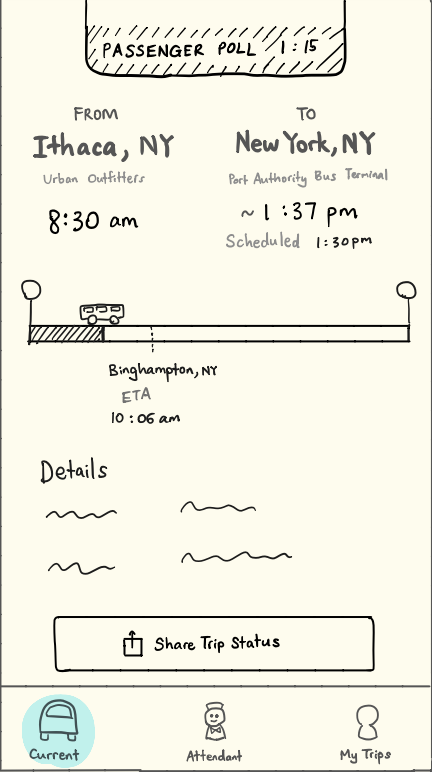 PASSENGER POLL 1:15
FROM
Ithaca, NY
Urban Outfitters
8:30 am
TO
New York, NY
Port Authority Bus Terminal
~ 1:37 pm
Scheduled 1:30pm
Binghampton, NY
ETA
10:06 am
Details
Share Trip Status
Current
Attendant
My Trips